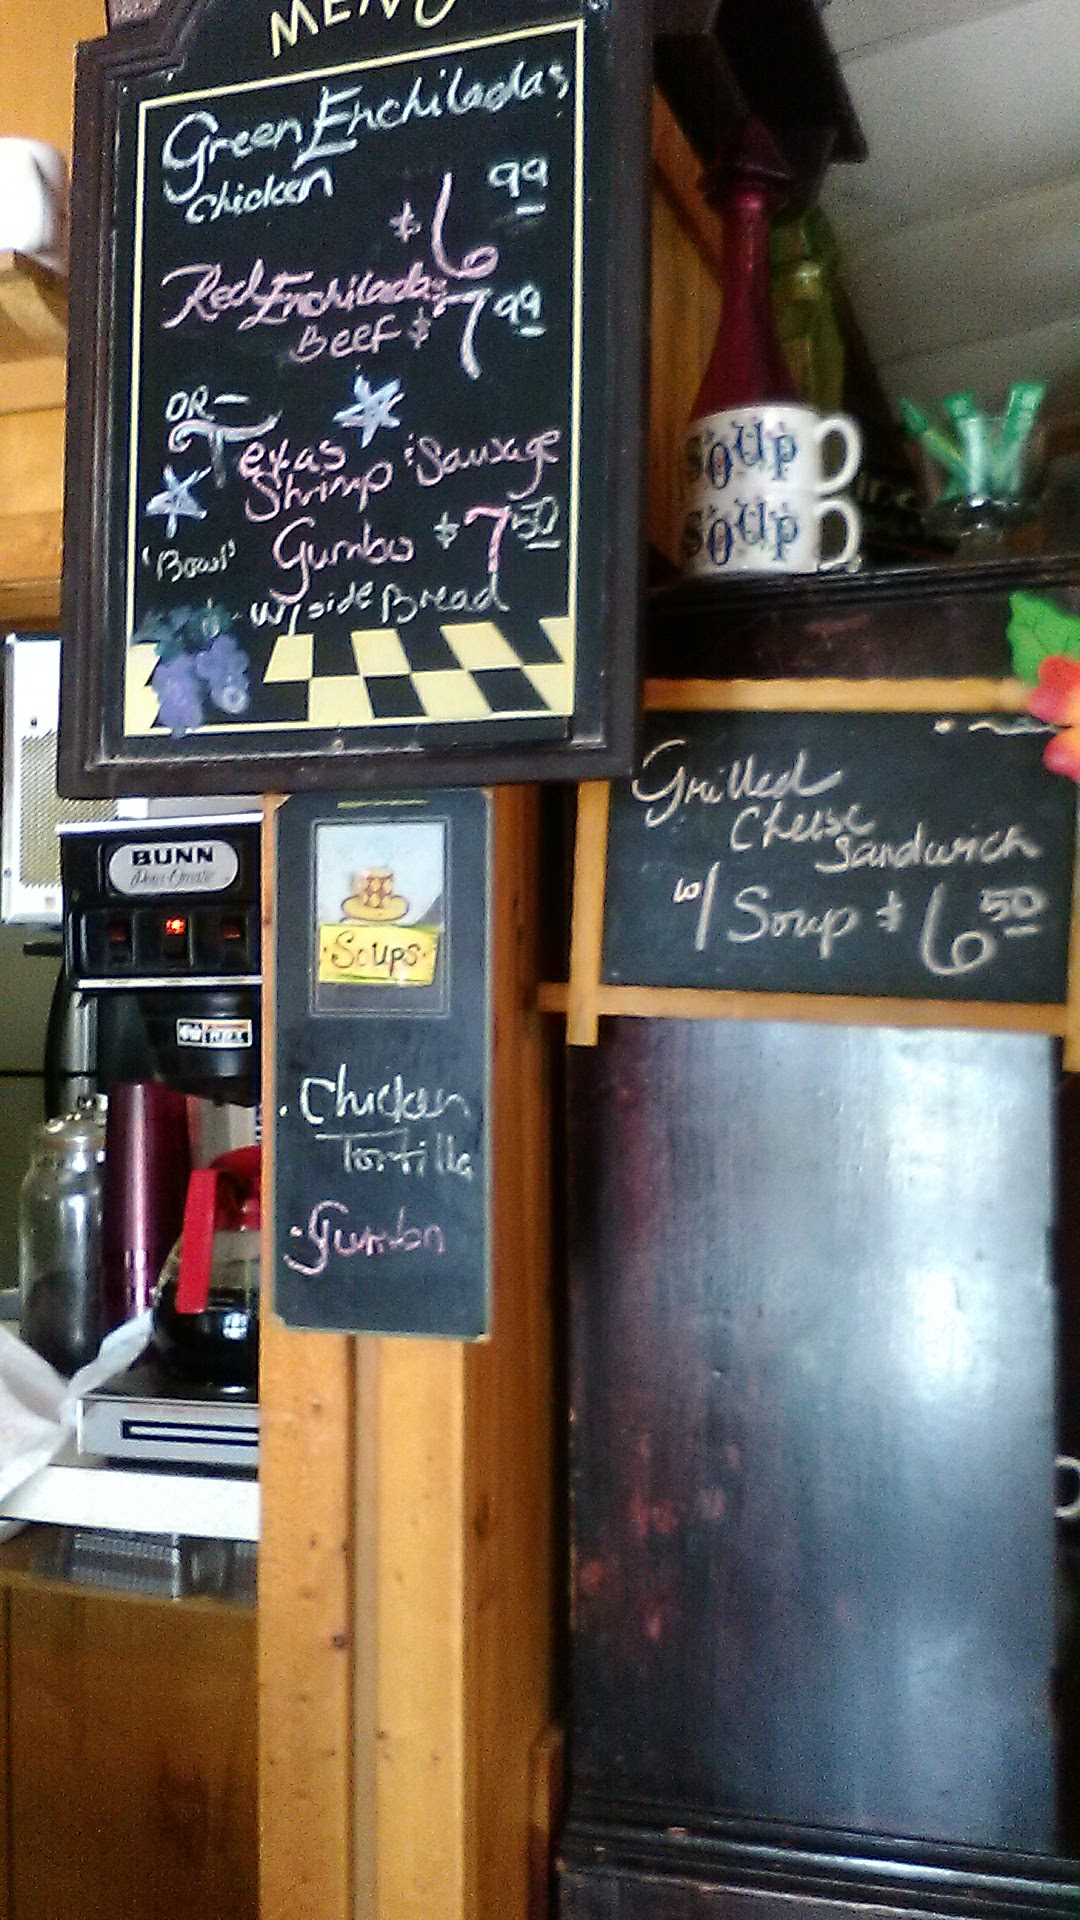 MENU
Green Enchiladas
Chicken
$6 99
Red Enchiladas
Beef $7 99
OR-
Texas
Shrimp & Sausage
'Bowl' Gumbo $7 50
w/ side Bread
SOUP
SOUP
Grilled
Cheese
Sandwich
w/ Soup $6 50
BUNN
Pour-Omatic
Soups
. Chicken
Tortilla
. Gumbo